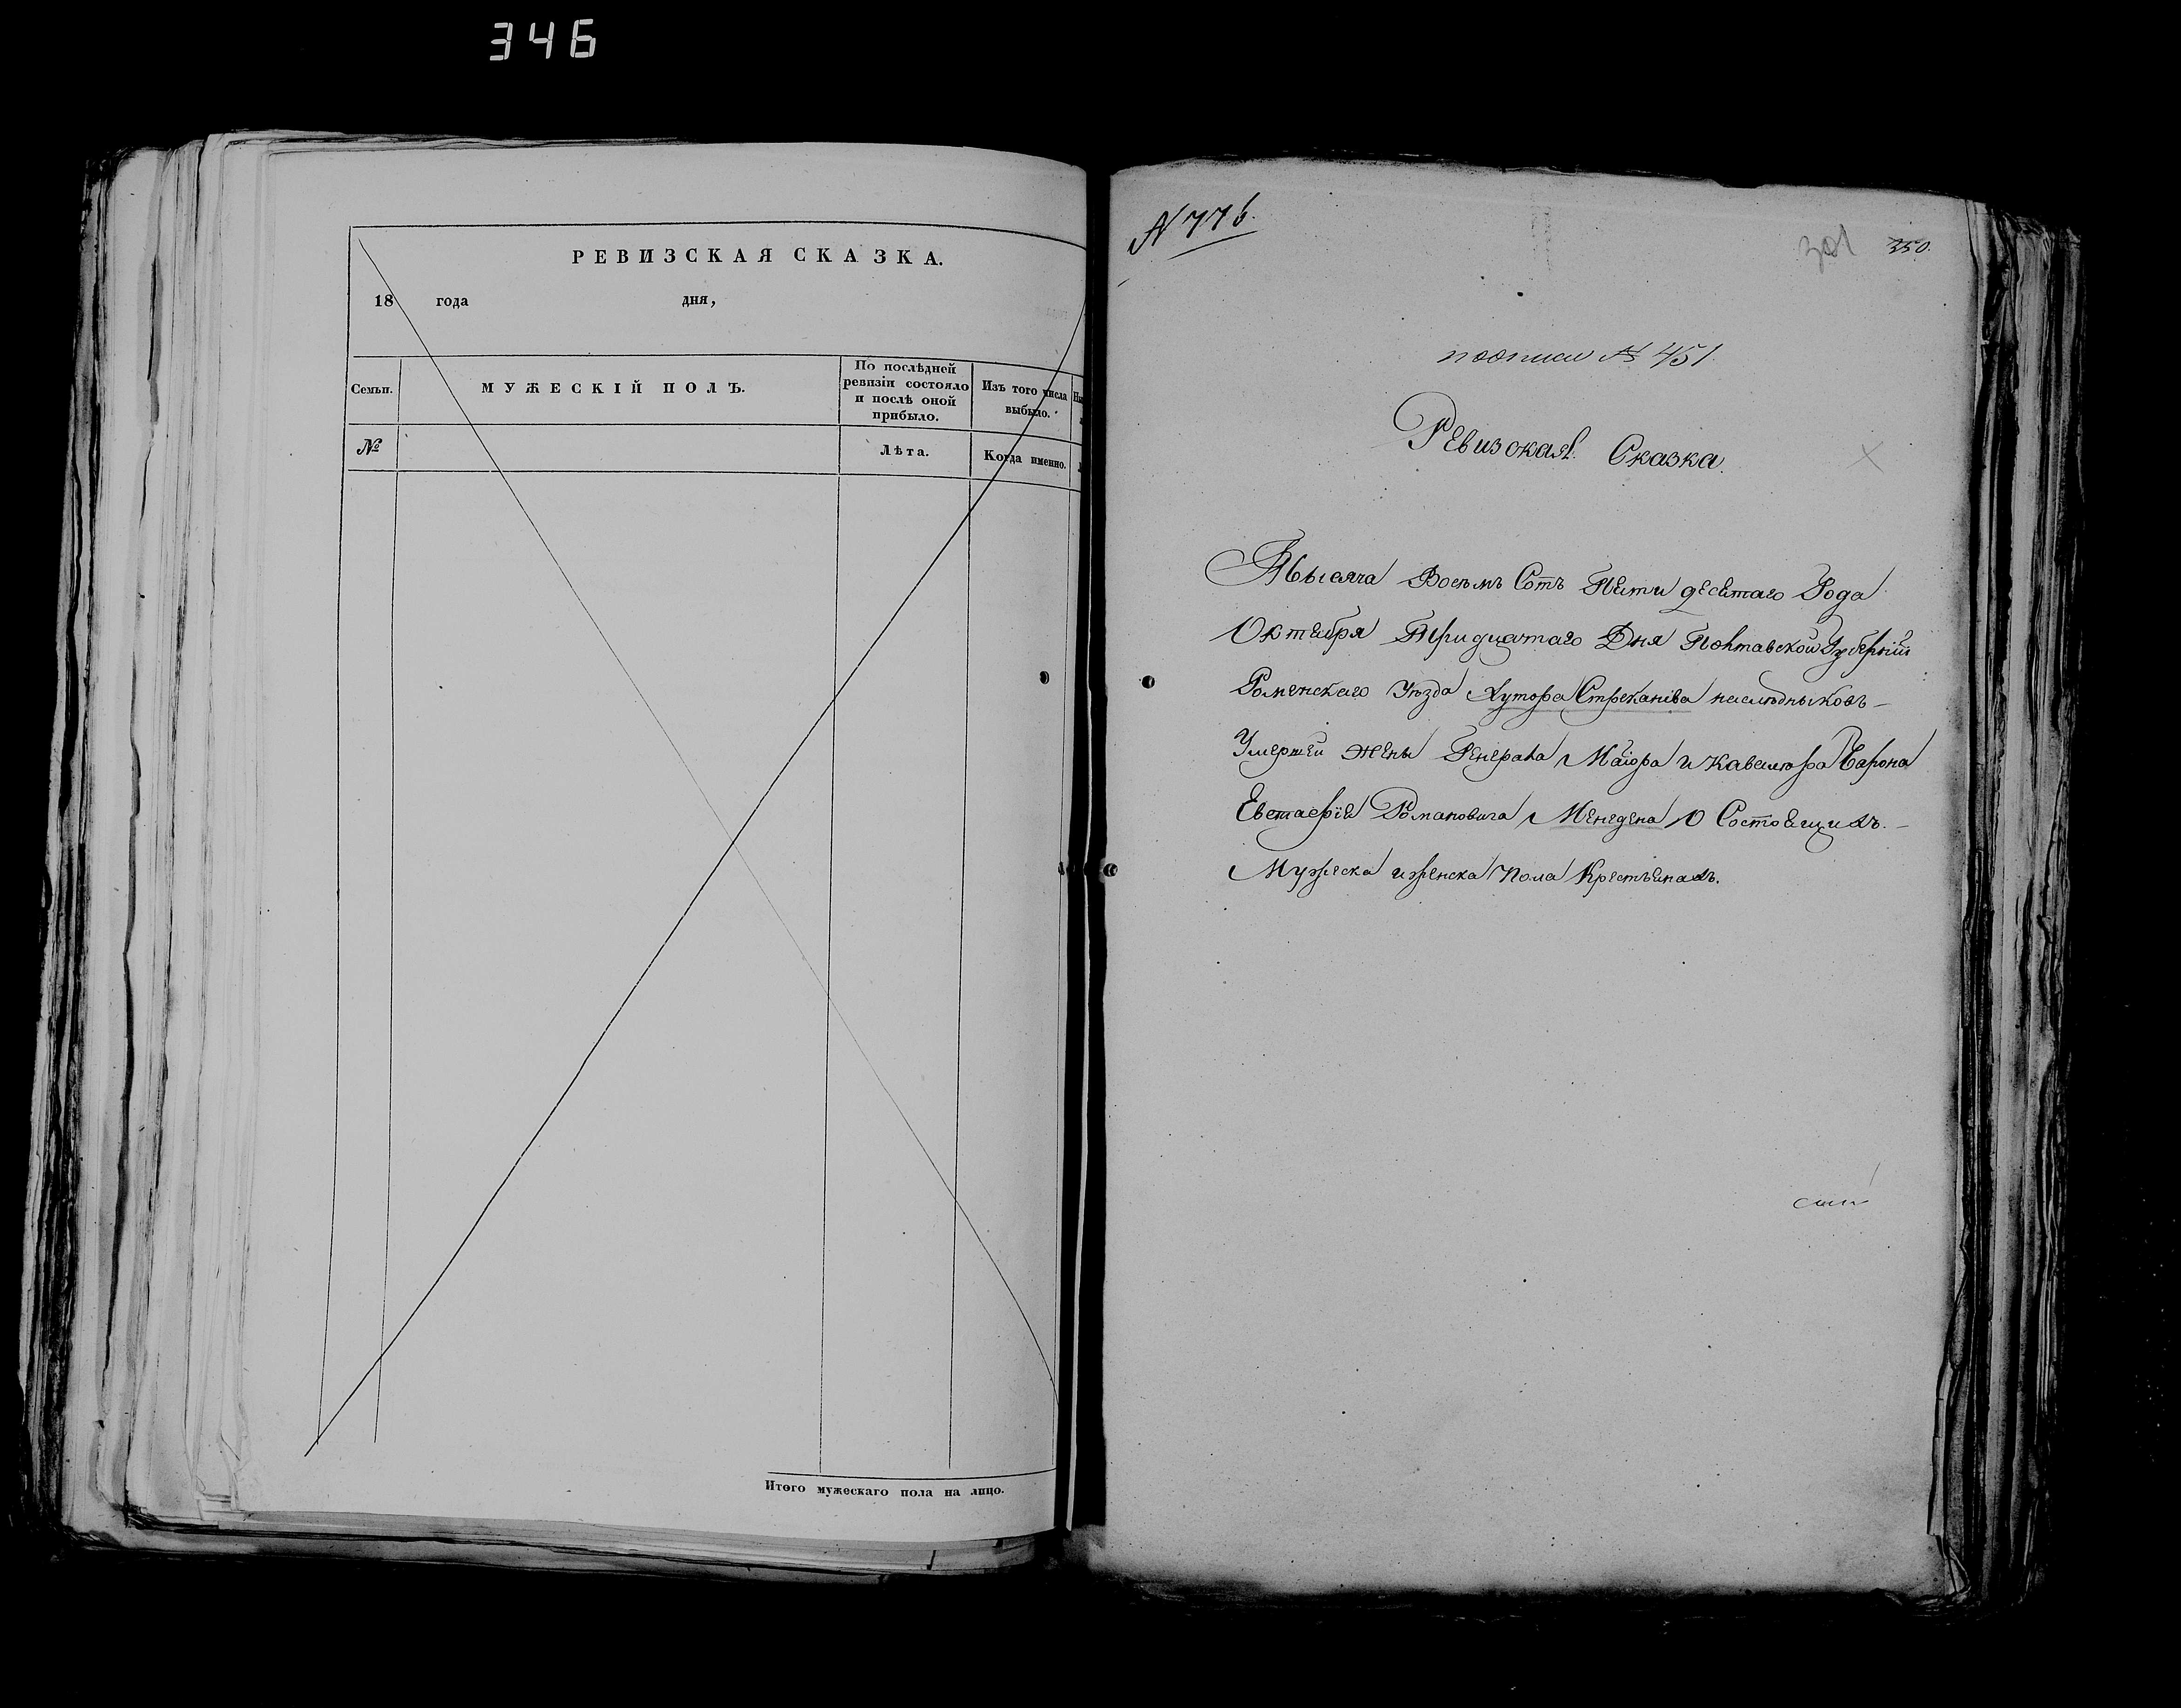 346
РЕВИЗСКАЯ СКАЗКА.
18 года дня,
Семьи.
МУЖЕСКІЙ ПОЛЪ.
По послѣдней
ревизіи состояло
и послѣ оной
прибыло.
Изъ того числа
выбыло.
№
Лѣта.
Когда именно.
Итого мужескаго пола на лицо.
N 776.
301 350.
поописи № 451.
Ревизская Сказка.
Тысяча Восемь Сотъ Пяти десятаго Года
Октября Тридцатаго Дня Полтавской Губерніи
Роменскаго Уѣзда Хутора Стреканева наслѣдныковъ
Умершей жены Генерала Маіора и Кавалера Барона
Евстафія Романовича Менгдена О Состоящихъ.
Мужеска и женска Пола Крестьянахъ.